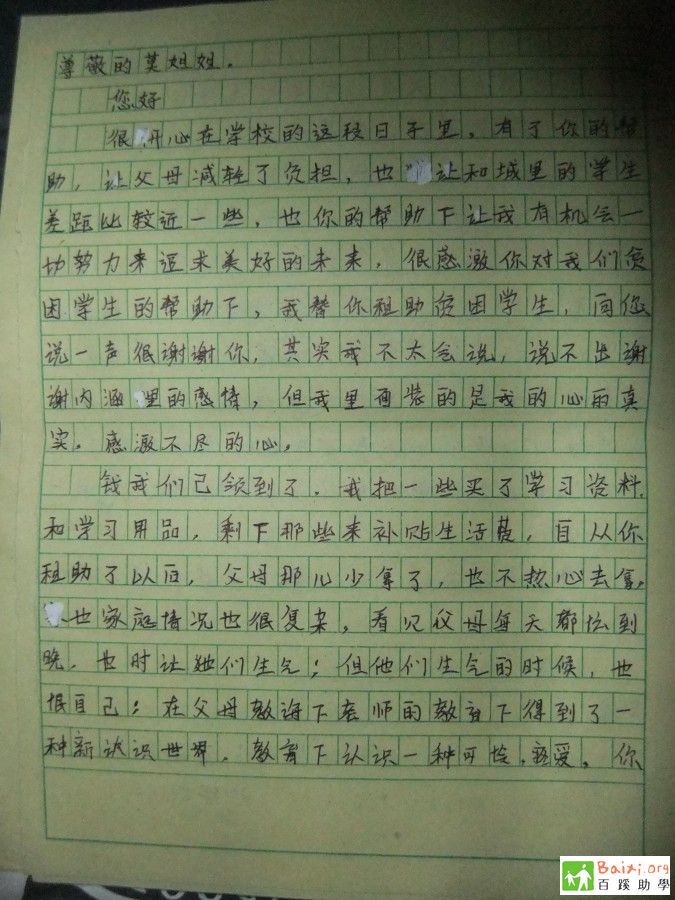 尊敬的莫姐姐。
您好
很开心在学校的这段日子里,有了你的帮
助,让父母减轻了负担,也让和城里的学生
差距比较近一些,也你的帮助下让我有机会一
切努力来追求美好的未来,很感激你对我们贫
困学生的帮助下,我替你租助贫困学生,向您
说一声很谢谢你,其实我不太会说,说不出谢
谢内涵里的感情,但我里面装的是我的心的真
实。感激不尽的心。
钱我们已领到了,我把一些买了学习资料,
和学习用品,剩下那些来补贴生活费,自从你
租助了以后,父母那儿少拿了,也不热心去拿,
也家庭情况也很复杂,看见父母每天都忙到
晚,也时让她们生气;但他们生气的时候,也
恨自己;在父母教诲下老师的教育下得到了一
种新认识世界,教育下认识一种可怜,爱。你
Baixi.org
百蹊助學